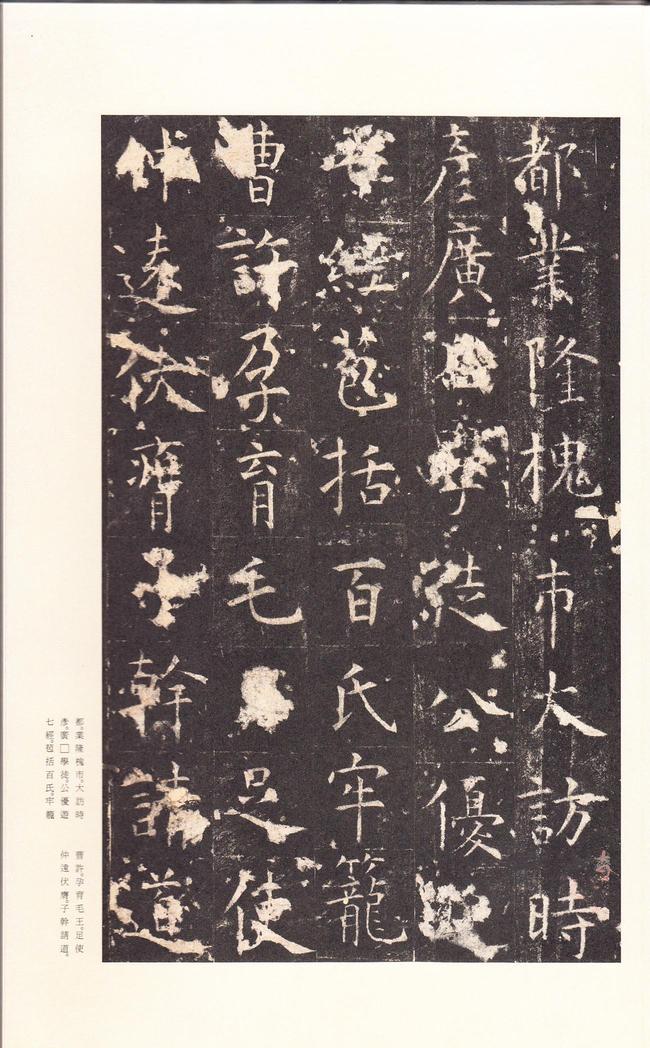 都業隆槐市大訪時
彥廣學徒公優遊
經苞括百氏牢籠
曹許孕育毛足使
仲遠伏膺子幹請道
都。業隆槐市。大訪時
彥。廣□學徒。公優遊
七經。苞括百氏。牢籠
曹許。孕育毛王。足使
仲遠伏膺。子幹請道。